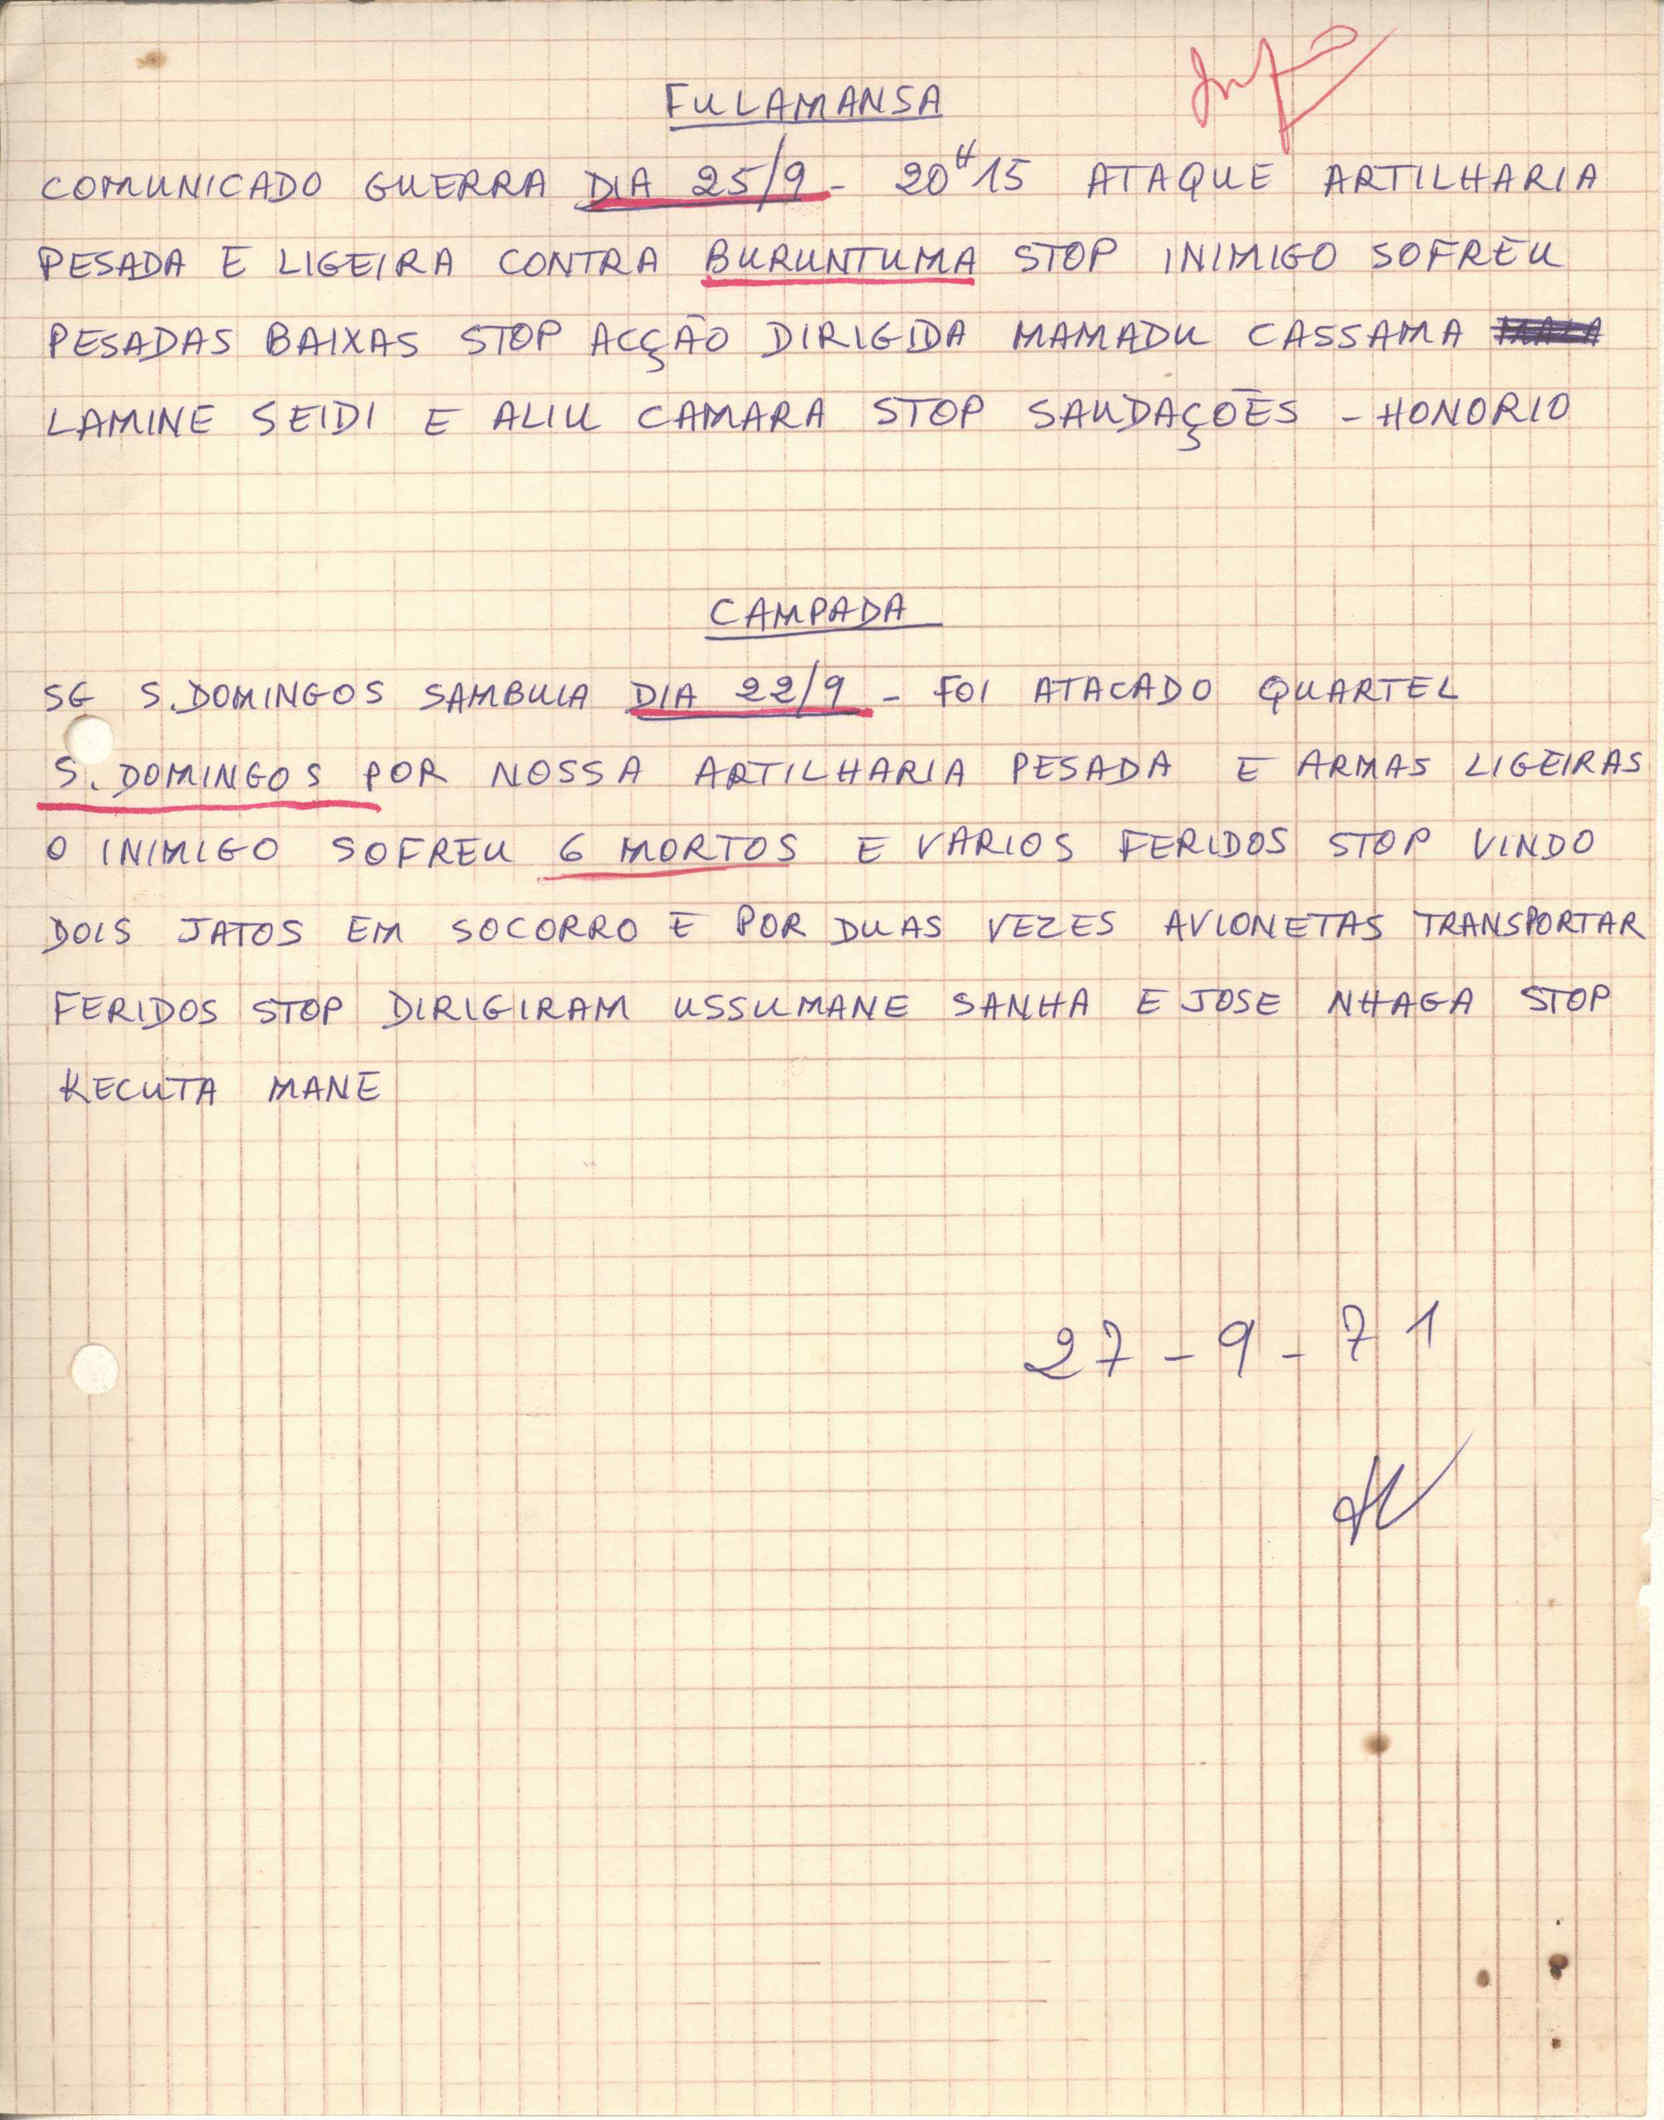 FULAMANSA
COMUNICADO GUERRA DIA 25/9 - 20H15 ATAQUE ARTILHARIA
PESADA E LIGEIRA CONTRA BURUNTUMA STOP INIMIGO SOFREU
PESADAS BAIXAS STOP ACÇÃO DIRIGIDA MAMADU CASSAMA
LAMINE SEIDI E ALIU CAMARA STOP SAUDAÇÕES - HONORIO
CAMPADA
SG S. DOMINGOS SAMBUIA DIA 22/9 - FOI ATACADO QUARTEL
S. DOMINGOS POR NOSSA ARTILHARIA PESADA E ARMAS LIGEIRAS
O INIMIGO SOFREU 6 MORTOS E VARIOS FERIDOS STOP VINDO
DOIS JATOS EM SOCORRO E POR DUAS VEZES AVIONETAS TRANSPORTAR
FERIDOS STOP DIRIGIRAM USSUMANE SANHA E JOSE NHAGA STOP
KECUTA MANE
27-9-71